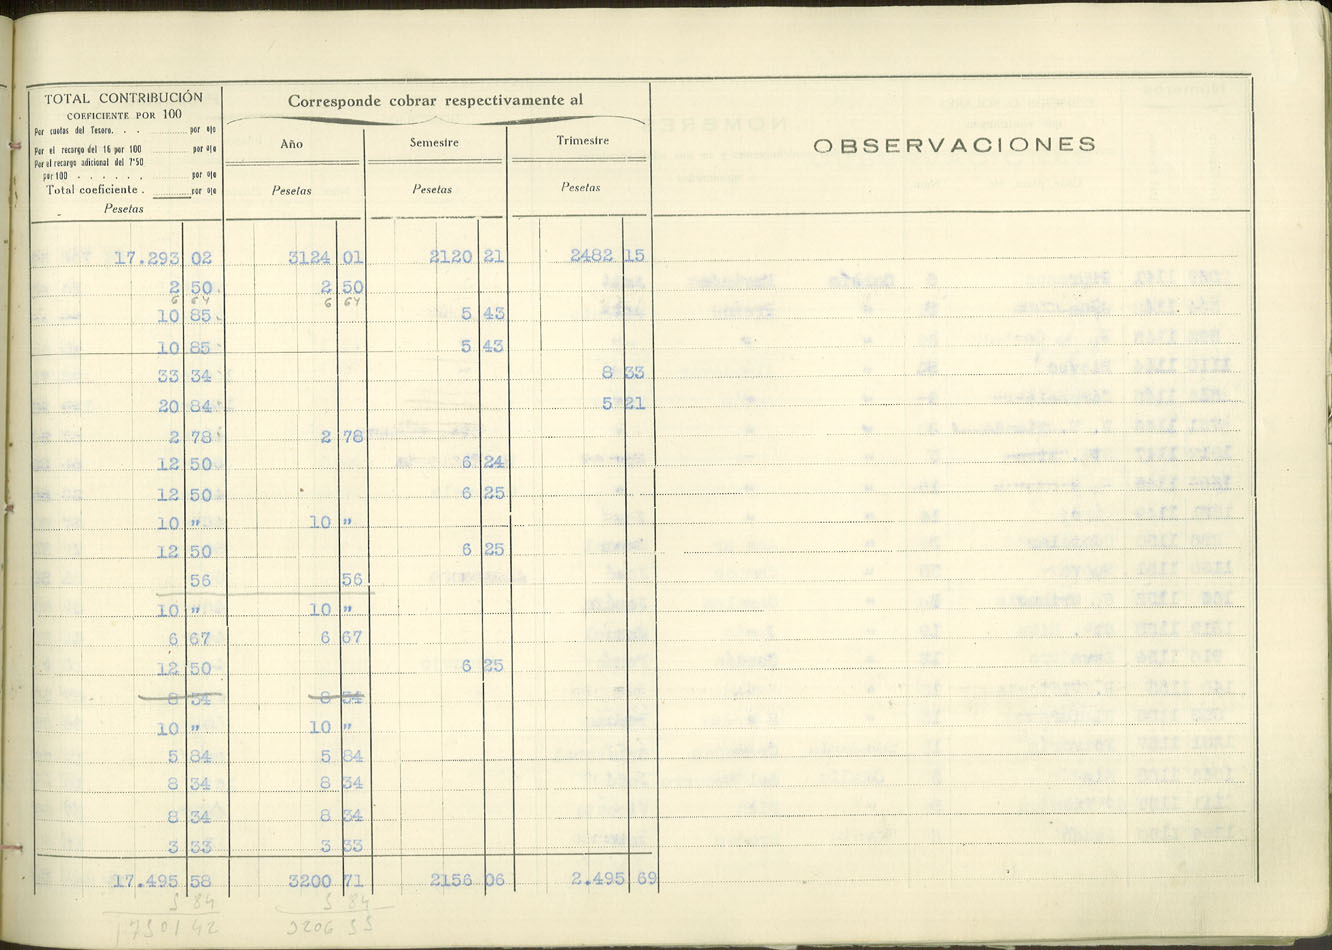 TOTAL CONTRIBUCIÓN
COEFICIENTE POR 100
Por cuotas del Tesoro. . . ............ por 0|0
Por el recargo del 16 por 100 ............ por 0|0
Por el recargo adicional del 7'50
por 100 . . . . . . ............ por 0|0
Total coeficiente . ............ por 0|0
Pesetas
Corresponde cobrar respectivamente al
Año
Pesetas
Semestre
Pesetas
Trimestre
Pesetas
OBSERVACIONES
17.293 02 3124 01 2120 21 2482 15
2 50 2 50
6 64 6 64
10 85 5 43
10 85 5 43
33 34 8 33
20 84 5 21
2 78 2 78
12 50 6 24
12 50 6 25
10 " 10 "
12 50 6 25
56 56
10 " 10 "
6 67 6 67
12 50 6 25
8 34 8 34
10 " 10 "
5 84 5 84
8 34 8 34
8 34 8 34
3 33 3 33
17.495 58 3200 71 2156 06 2.495 69
5 84 5 84
17501 42 3206 55